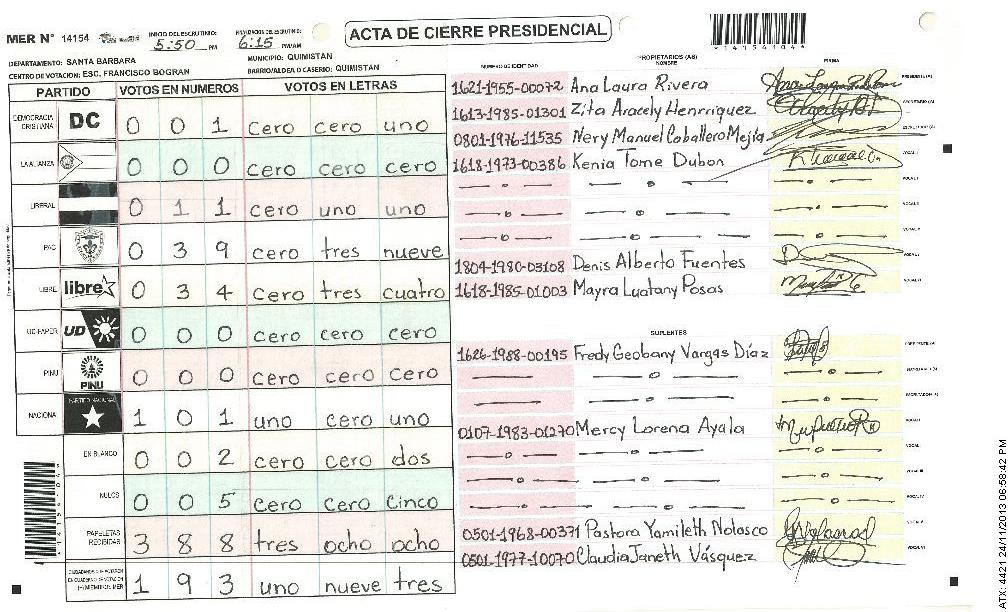 ACTA DE CIERRE PRESIDENCIAL
MER N° 14154
INICIO DEL ESCRUTINIO: 5:50 PM
6:15 PM/AM
DEPARTAMENTO: SANTA BARBARA
MUNICIPIO: QUIMISTAN
CENTRO DE VOTACION: ESC. FRANCISCO BOGRAN
BARRIO/ALDEA O CASERIO: QUIMISTAN
PARTIDO VOTOS EN NUMEROS VOTOS EN LETRAS
DEMOCRACIA CRISTIANA DC 0 0 1 cero cero uno
LA ALIANZA 0 0 0 cero cero cero
LIBERAL 0 1 1 cero uno uno
PAC 0 3 9 cero tres nueve
LIBRE libre 0 3 4 cero tres cuatro
UD-FAPER UD 0 0 0 cero cero cero
PINU PINU 0 0 0 cero cero cero
NACIONA PARTIDO NACIONAL 1 0 1 uno cero uno
EN BLANCO 0 0 2 cero cero dos
NULOS 0 0 5 cero cero cinco
PAPELETAS RECIBIDAS 3 8 8 tres ocho ocho
1 9 3 uno nueve tres
NUMERO DE IDENTIDAD PROPIETARIOS (AS) NOMBRE FIRMA
1621-1955-00072 Ana Laura Rivera
1613-1985-01301 Zita Aracely Henrriquez
0801-1976-11535 Nery Manuel Caballero Mejia
1618-1973-00386 Kenia Tome Dubon
1804-1980-03108 Denis Alberto Fuentes
1618-1985-01003 Mayra Luatany Posas
SUPLENTES
1626-1988-00195 Fredy Geobany Vargas Díaz
0107-1983-01270 Mercy Lorena Ayala
0501-1968-00371 Pastora Yamileth Nolasco
0501-1977-10070 Claudia Janeth Vásquez
ATX: 4421 24/11/2013 06:58:42 PM